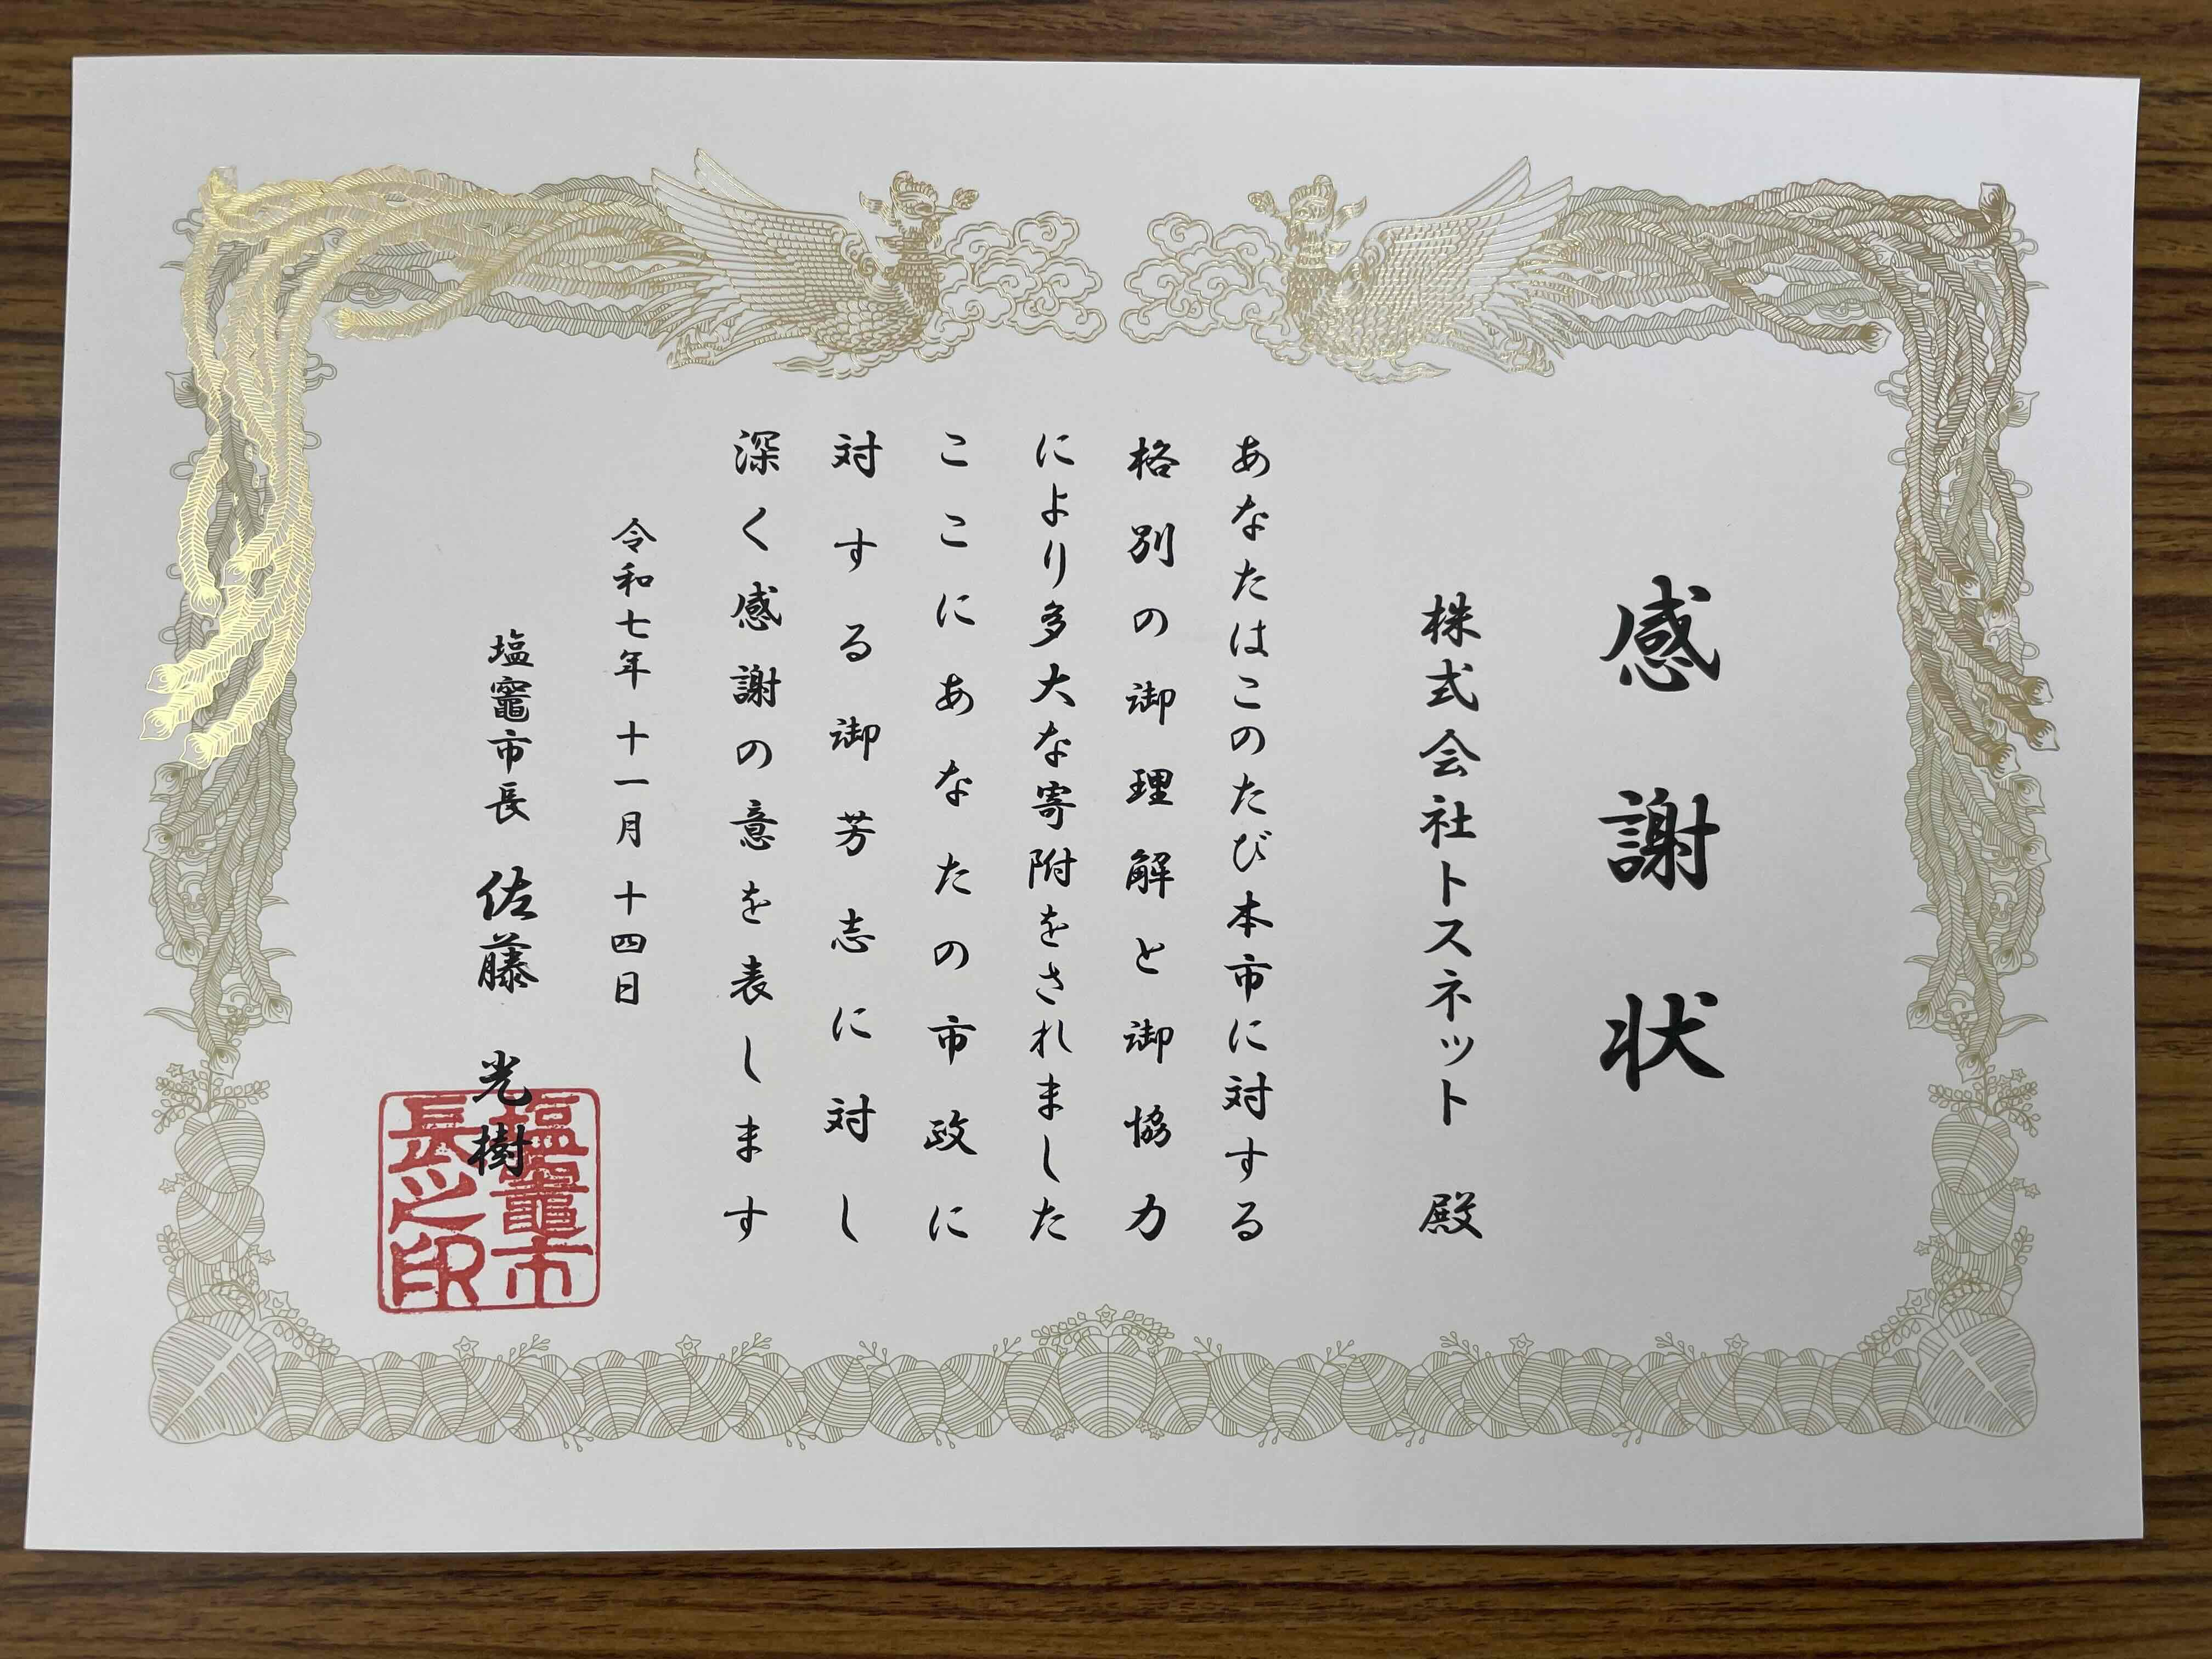 感謝状
株式会社トスネット 殿
あなたはこのたび本市に対する
格別の御理解と御協力
により多大な寄附をされました
ここにあなたの市政に
対する御芳志に対し
深く感謝の意を表します
令和七年 十一月 十四日
塩竈市長 佐藤 光樹
塩竈市
長之印